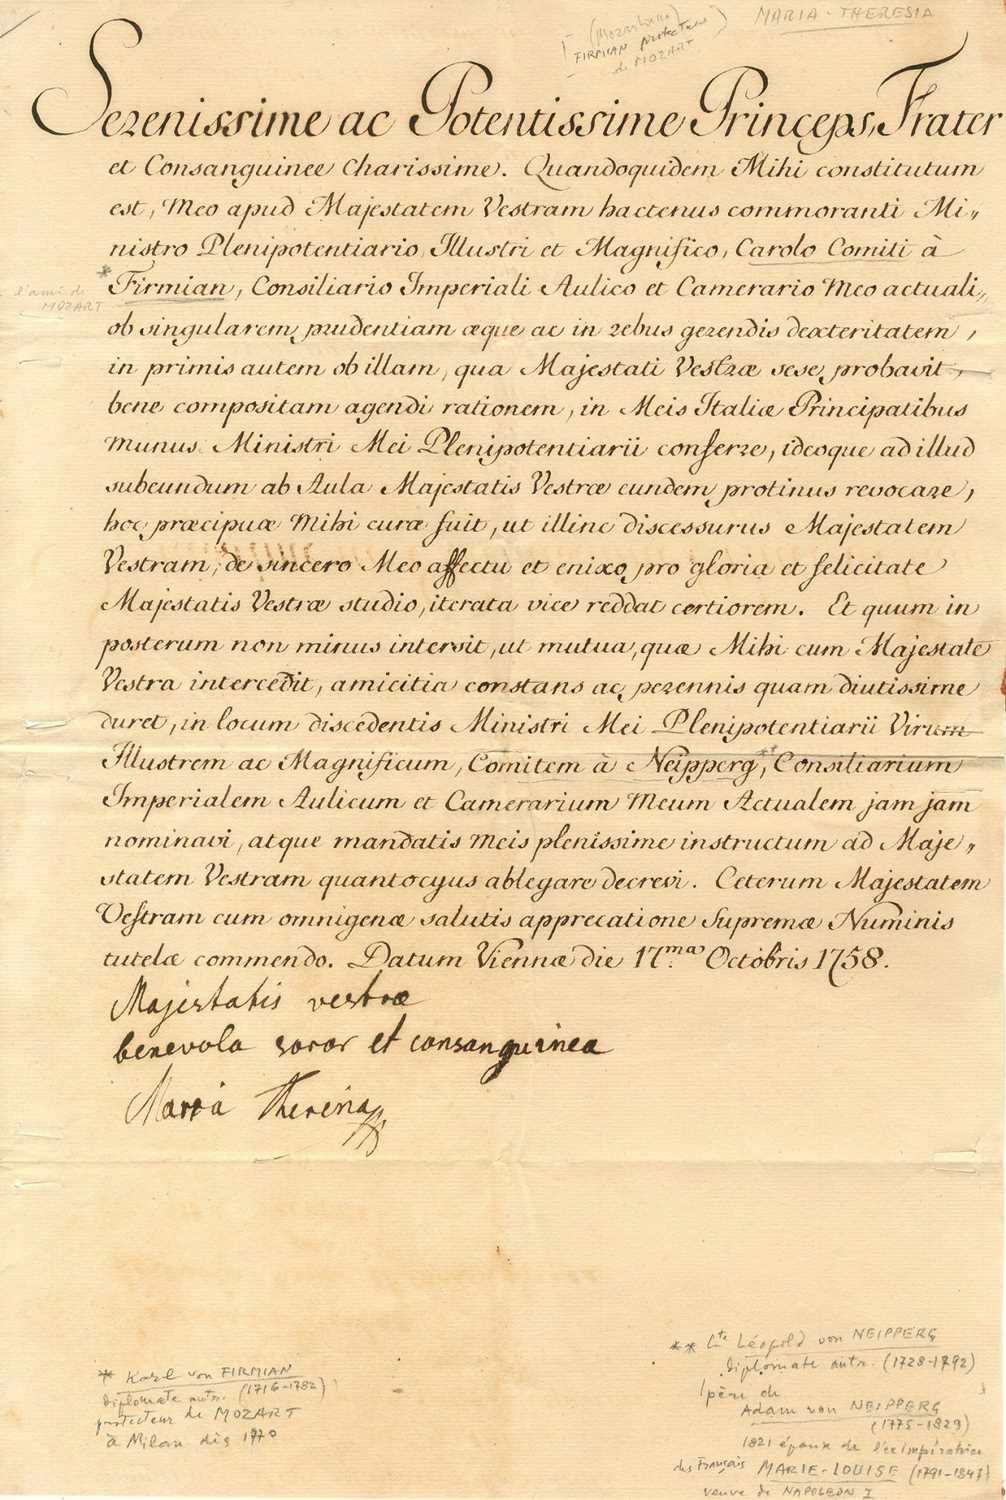 MARIA-THERESIA
(Mozartiana)
FIRMIAN protecteur
de MOZART
Serenissime ac Potentissime Princeps, Frater
et Consanguinee Charissime. Quandoquidem Mihi constitutum
est, Meo apud Majestatem Vestram hactenus commoranti Mi„
nistro Plenipotentiario, Illustri et Magnifico, Carolo Comiti à
* Firmian, Consiliario Imperiali Aulico et Camerario Meo actuali,
l'ami de
MOZART
ob singularem prudentiam æque ac in rebus gerendis dexteritatem,
in primis autem ob illam, qua Majestati Vestræ sese probavit,
bene compositam agendi rationem, in Meis Italiæ Principatibus
munus Ministri Mei Plenipotentiarii conferre, ideoque ad illud
subeundum ab Aula Majestatis Vestræ eundem protinus revocare,
hoc præcipuæ Mihi curæ fuit, ut illinc discessurus Majestatem
Vestram, de sincero Meo affectu et enixo pro gloria et felicitate
Majestatis Vestræ studio, iterata vice reddat certiorem. Et quum in
posterum non minus intersit, ut mutua, quæ Mihi cum Majestate
Vestra intercedit, amicitia constans ac perennis quam diutissime
duret, in locum discedentis Ministri Mei Plenipotentiarii Virum
Illustrem ac Magnificum, Comitem à Neipperg,** Consiliarium
Imperialem Aulicum et Camerarium Meum Actualem jam jam
nominavi, atque mandatis Meis plenissime instructum ad Maje„
statem Vestram quantocyus ablegare decrevi. Ceterum Majestatem
Vestram cum omnigenæ salutis apprecatione Supremæ Numinis
tutelæ commendo. Datum Viennæ die 17.ma Octobris 1758.
Majestatis vestræ
benevola soror et consanguinea
Maria Theresia
* Karl von FIRMIAN
diplomate autr. (1716-1782)
protecteur de MOZART
à Milan dès 1770
** Cte Léopold von NEIPPERG
diplomate autr. (1728-1792)
père de
Adam von NEIPPERG
(1775-1829)
1821 époux de l'ex impératrice
des Français MARIE-LOUISE (1791-1847)
veuve de NAPOLEON I